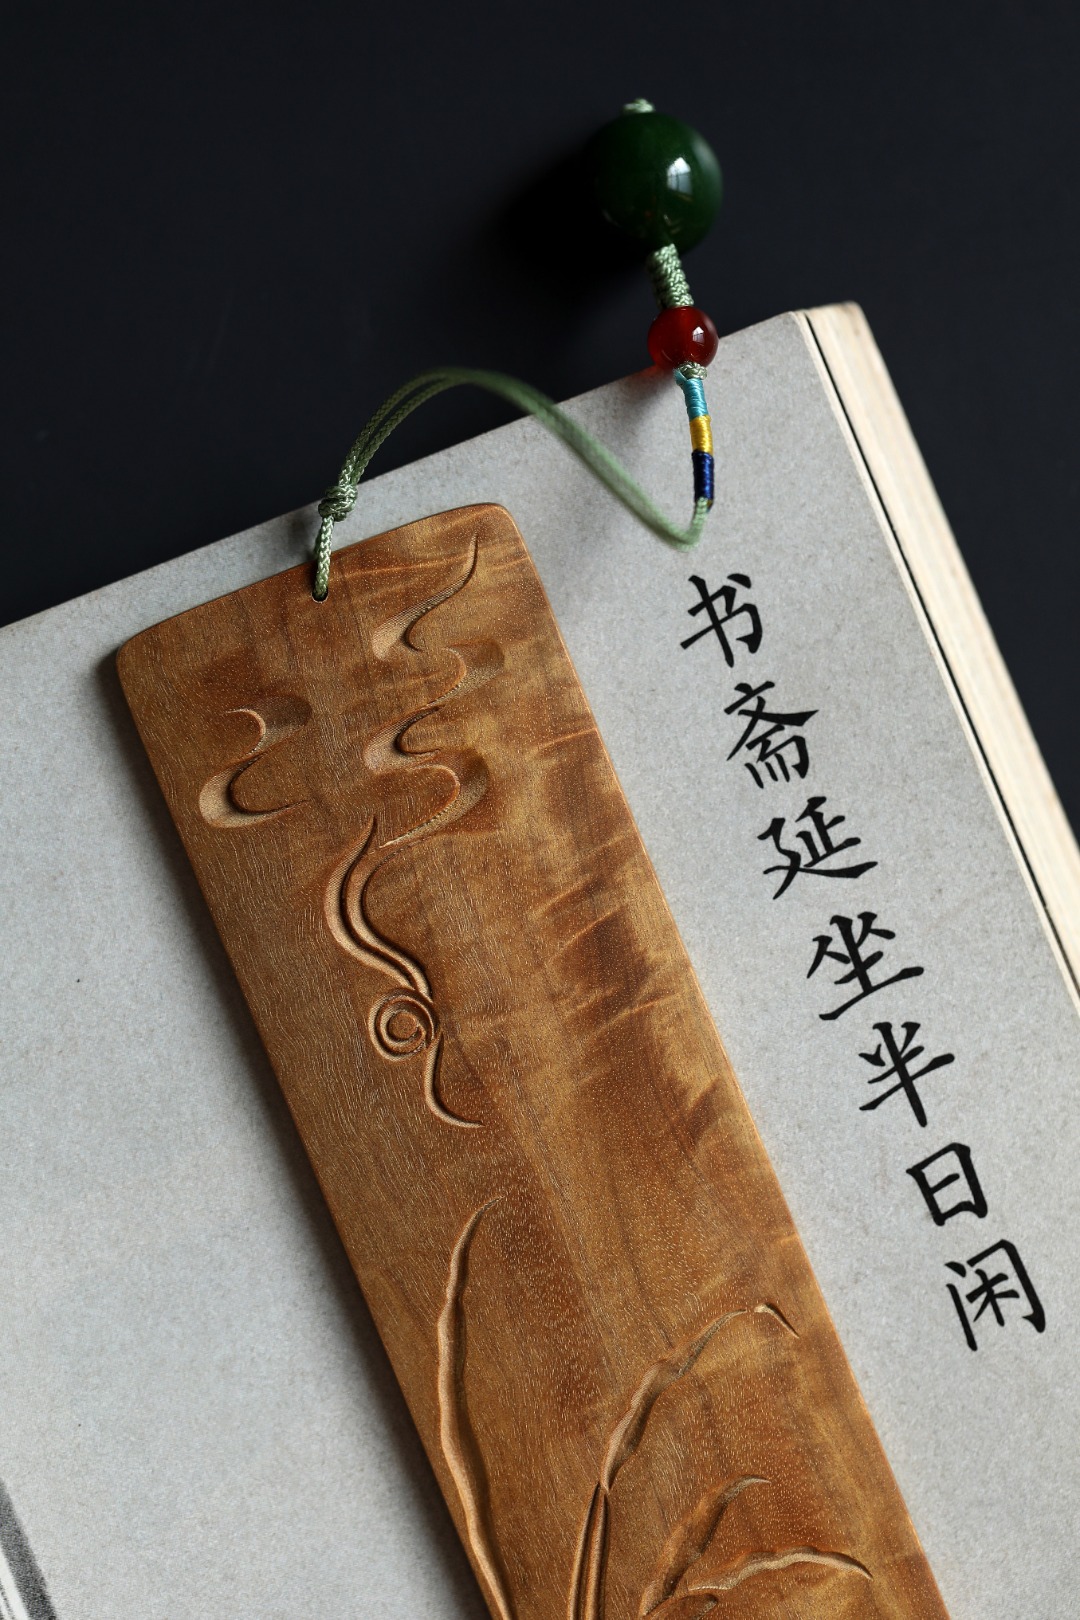 书斋延坐半日闲